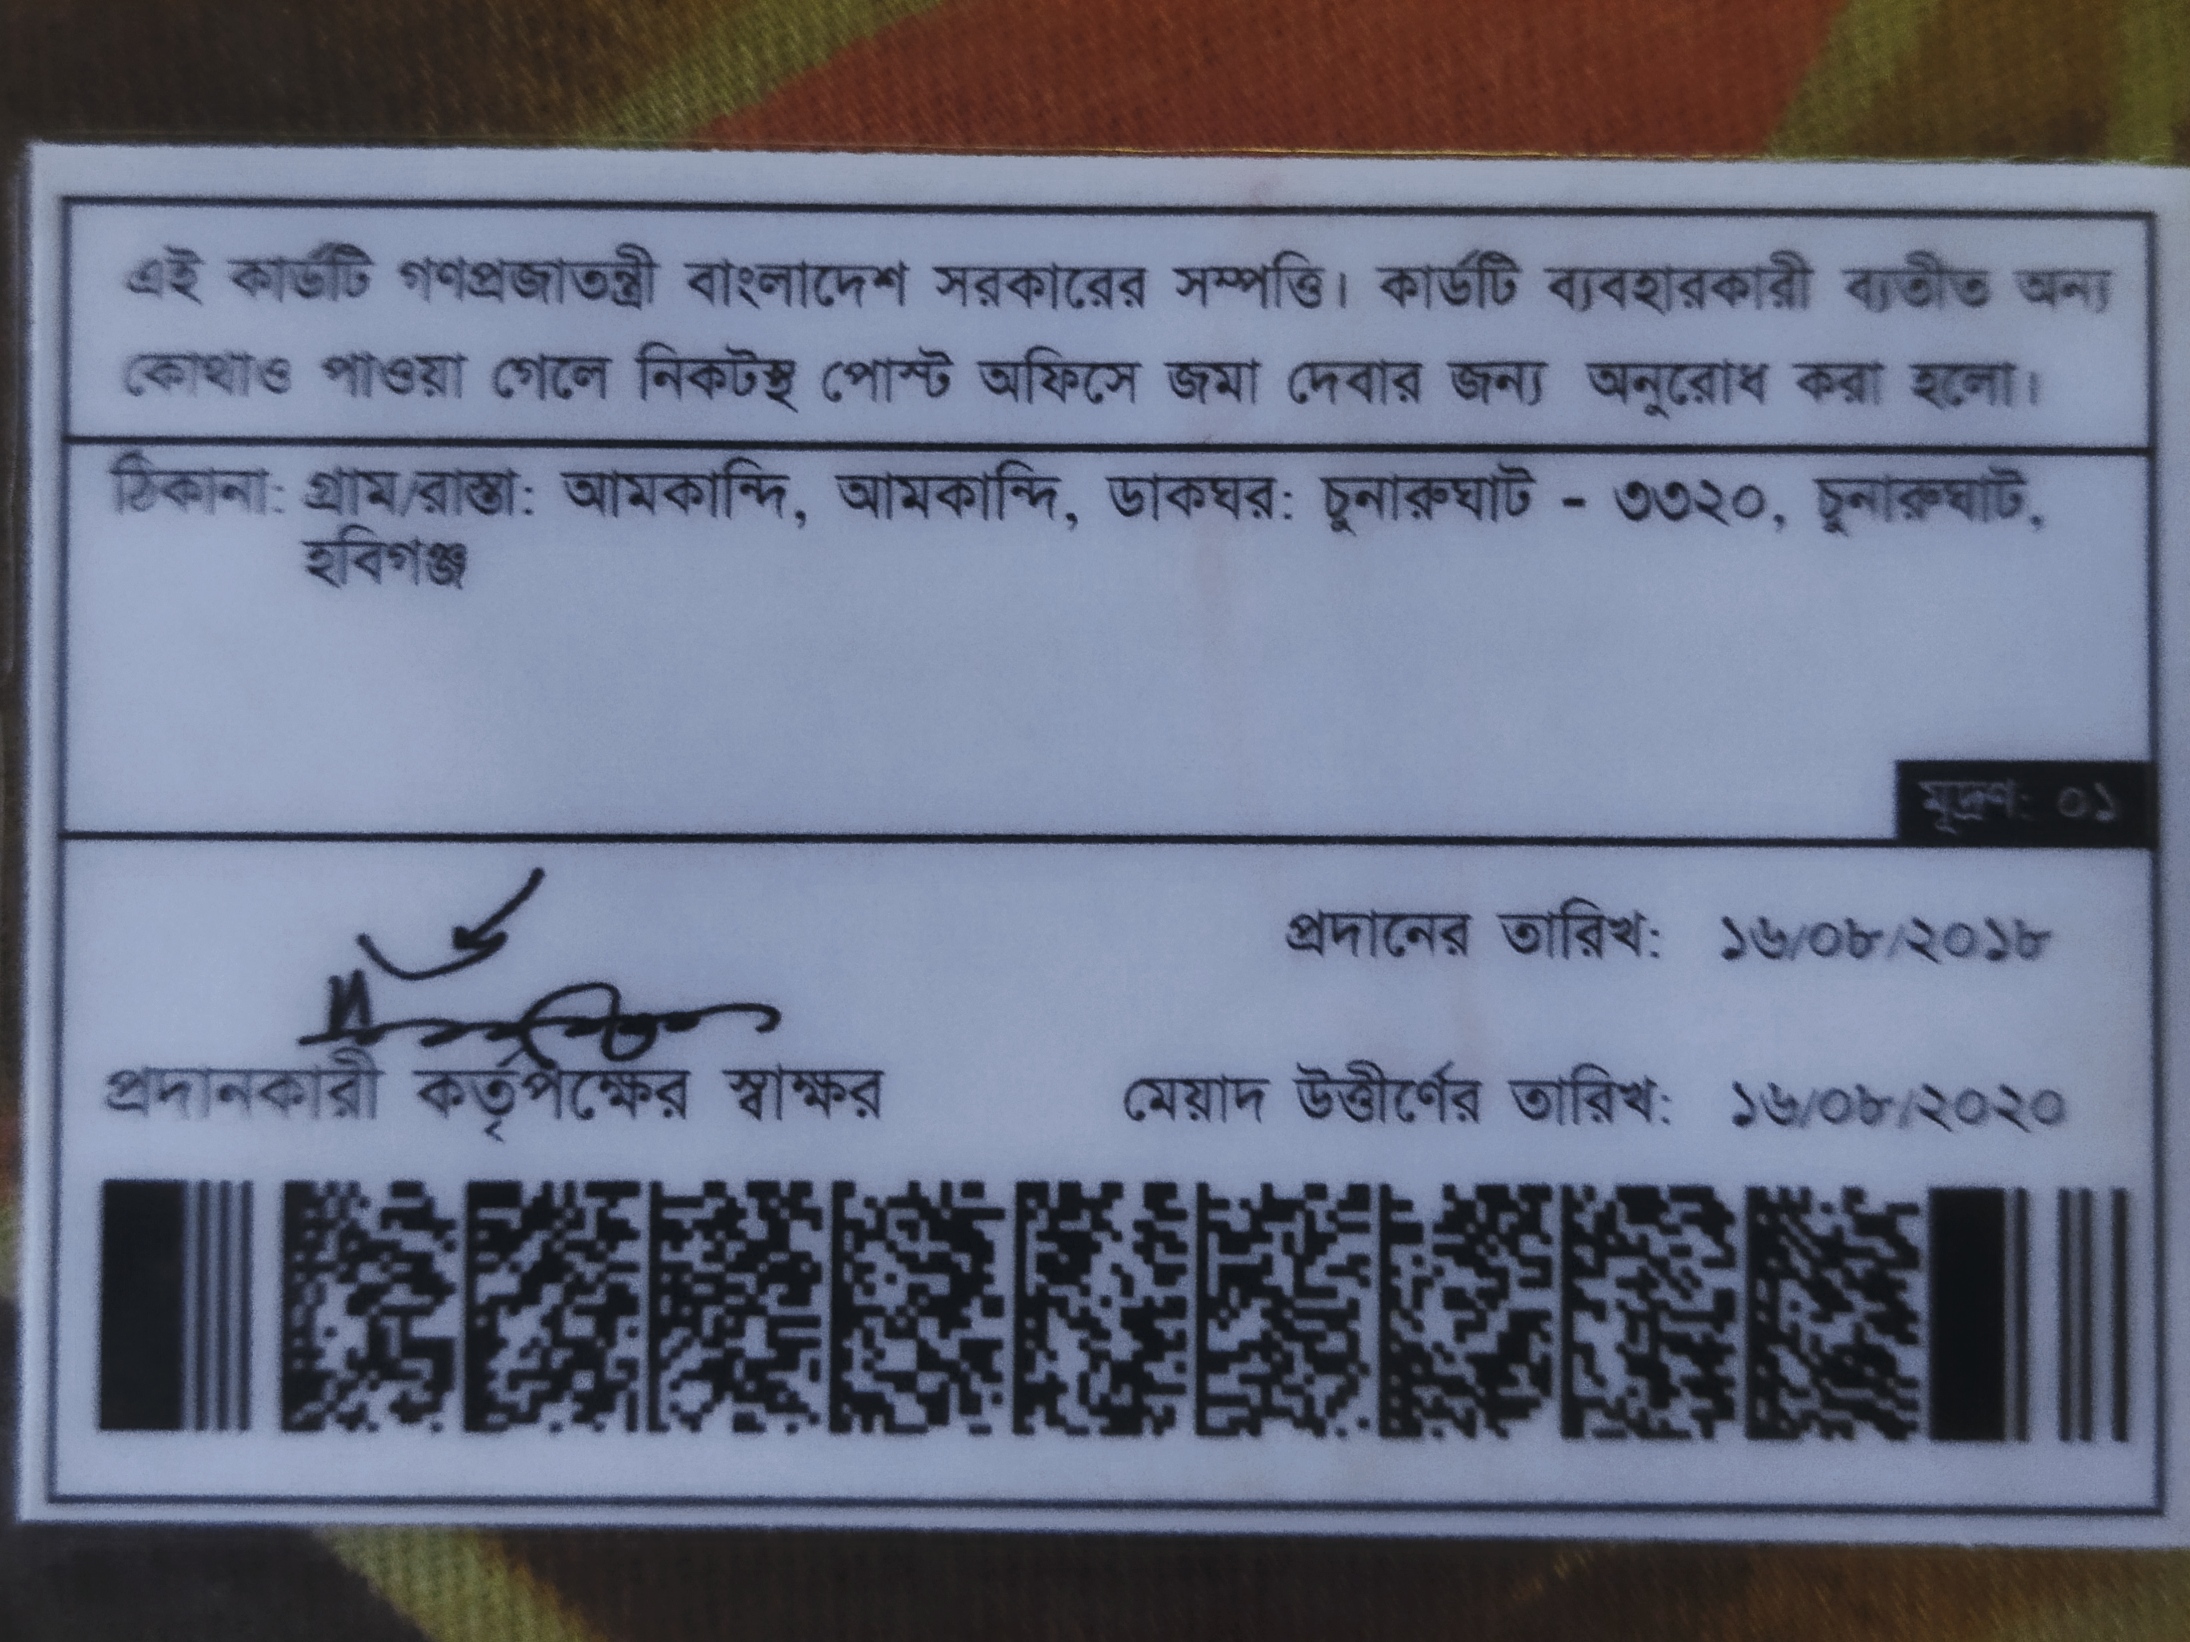 এই কার্ডটি গণপ্রজাতন্ত্রী বাংলাদেশ সরকারের সম্পত্তি। কার্ডটি ব্যবহারকারী ব্যতীত অন্য
কোথাও পাওয়া গেলে নিকটস্থ পোস্ট অফিসে জমা দেবার জন্য অনুরোধ করা হলো।
ঠিকানা: গ্রাম/রাস্তা: আমকান্দি, আমকান্দি, ডাকঘর: চুনারুঘাট - ৩৩২০, চুনারুঘাট,
হবিগঞ্জ
মুদ্রণ: ০১
প্রদানের তারিখ: ১৬/০৮/২০১৮
প্রদানকারী কর্তৃপক্ষের স্বাক্ষর মেয়াদ উত্তীর্ণের তারিখ: ১৬/০৮/২০২০